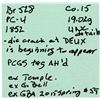 Br 528 Co. 15
PC-4
1852
die crack at DEUX
is beginning to appear
PCGS tag AH'd
ex Temple.
ex G. Bell
ex GBA 2015 Spring # 5T